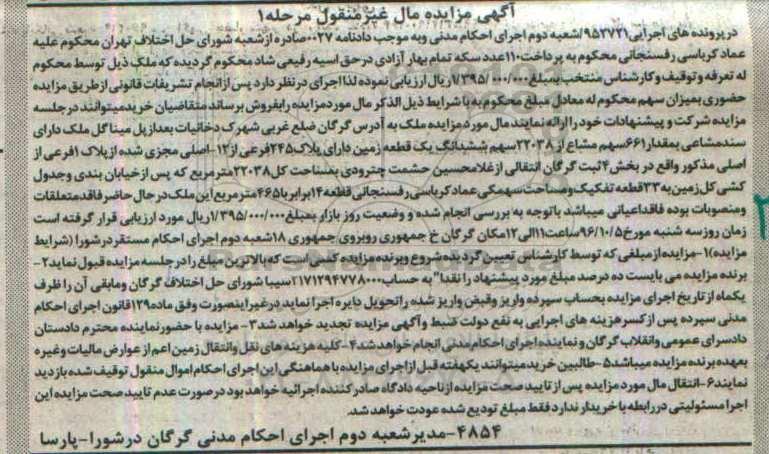 آگهی مزایده مال غیرمنقول مرحله۱
در پرونده های اجرایی ۹۵۳۷۲۱/شعبه دوم اجرای احکام مدنی وبه موجب دادنامه ۰۰۲۷صادره ازشعبه شورای حل اختلاف تهران محکوم علیه
عماد کرباسی رفسنجانی محکوم به پرداخت۱۱۰عدد سکه تمام بهار آزادی در حق آسیه رفیعی شاد محکوم گردیده که ملک ذیل توسط محکوم
له تعرفه وتوقیف وکارشناس منتخب بمبلغ۱/۳۹۵/۰۰۰/۰۰۰ریال ارزیابی نموده لذا اجرای در نظر دارد پس از انجام تشریفات قانونی از طریق مزایده
حضوری بمیزان سهم محکوم له معادل مبلغ محکوم به با شرایط ذیل الذکر مال مورد مزایده را بفروش برساند متقاضیان خرید میتوانند در جلسه
مزایده شرکت و پیشنهادات خود را ارائه نمایند مال مورد مزایده ملک به آدرس گرگان ضلع غربی شهرک دخانیات بعد از پل میناگل ملک دارای
سند مشاعی بمقدار۶۶۱سهم مشاع از۲۲۰۳۸سهم ششدانگ یک قطعه زمین دارای پلاک۲۴۵فرعی از۱۲-اصلی مجزی شده از پلاک ۱فرعی از
اصلی مذکور واقع در بخش۴ثبت گرگان انتقالی از غلامحسین حشمت چترودی بمساحت کل۲۲۰۳۸مترمربع که پس از خیابان بندی وجدول
کشی کل زمین به۳۳قطعه تفکیک ومساحت سهمی عماد کرباسی رفسنجانی قطعه۱۴برابر با۴۶۵مترمربع این ملک در حال حاضر فاقد متعلقات
ومنصوبات بوده فاقد اعیانی میباشد باتوجه به بررسی انجام شده و وضعیت روز بازار بمبلغ۱/۳۹۵/۰۰۰/۰۰۰ریال مورد ارزیابی قرار گرفته است
زمان روز سه شنبه مورخ۹۶/۱۰/۵ساعت۱۱الی۱۲مکان گرگان خ جمهوری روبروی جمهوری ۱۸شعبه دوم اجرای احکام مستقر در شورا (شرایط
مزایده)۱-مزایده از مبلغی که توسط کارشناس تعیین گردیده شروع وبرنده مزایده کسی است که بالاترین مبلغ را در جلسه مزایده قبول نماید۲-
برنده مزایده می بایست ده درصد مبلغ مورد پیشنهاد را نقدا" به حساب۲۱۷۱۲۹۴۷۷۸۰۰۰سیبا شورای حل اختلاف گرگان ومابقی آن را ظرف
یکماه از تاریخ اجرای مزایده بحساب سپرده واریز وقبض واریز شده را تحویل دایره اجرا نماید در غیر اینصورت وفق ماده۱۲۹قانون اجرای احکام
مدنی سپرده پس از کسر هزینه های اجرایی به نفع دولت ضبط و آگهی مزایده تجدید خواهد شد۳-مزایده با حضور نماینده محترم دادستان
دادسرای عمومی وانقلاب گرگان و نماینده اجرای احکام مدنی انجام خواهد شد۴-کلیه هزینه های نقل وانتقال زمین اعم از عوارض مالیات وغیره
بعهده برنده مزایده میباشد۵-طالبین خرید میتوانند یکهفته قبل از اجرای مزایده با هماهنگی این اجرای احکام اموال منقول توقیف شده بازدید
نمایند۶-انتقال مال مورد مزایده پس از تایید صحت مزایده از ناحیه دادگاه صادر کننده اجرائیه خواهد بود در صورت عدم تایید صحت مزایده این
اجرا مسئولیتی در رابطه با خریدار ندارد فقط مبلغ تودیع شده عودت خواهد شد.
۴۸۵۴-مدیر شعبه دوم اجرای احکام مدنی گرگان در شورا-پارسا